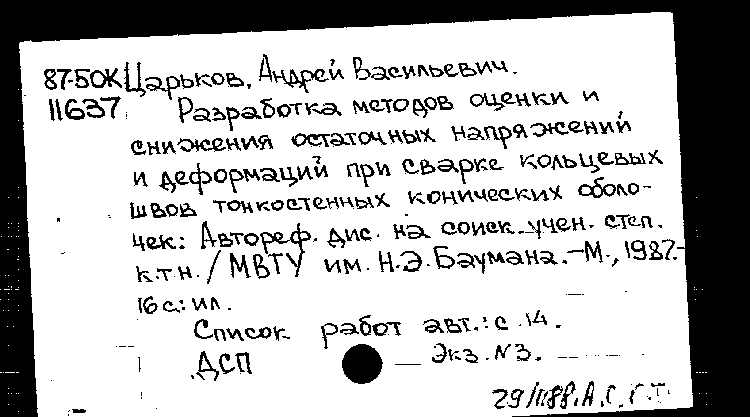 87-50К Царьков, Андрей Васильевич.
11637 Разработка методов оценки и
снижения остаточных напряжений
и деформаций при сварке кольцевых
швов тонкостенных конических оболо-
чек: Автореф. дис. на соиск. учен. степ.
к.т.н. / МВТУ им. Н.Э. Баумана. - М., 1987. -
16 с.: ил.
Список работ авт.: с. 14.
ДСП Экз. N3.